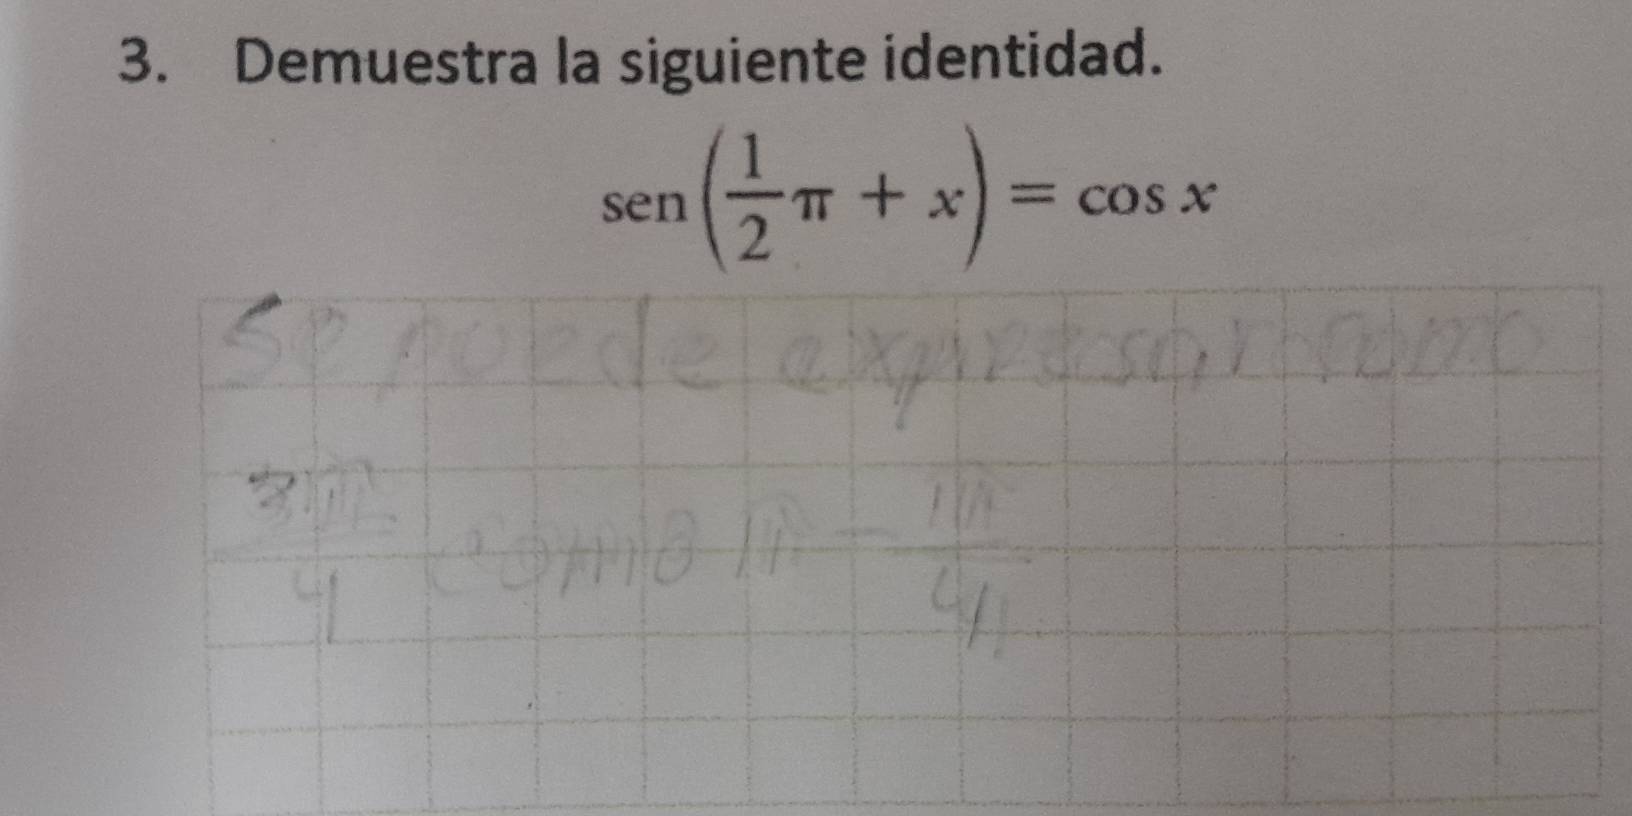 3. Demuestra la siguiente identidad.
sen (1/2 π + x) = cos x
Se puede expresar como
3π/4 como π - 1π/4